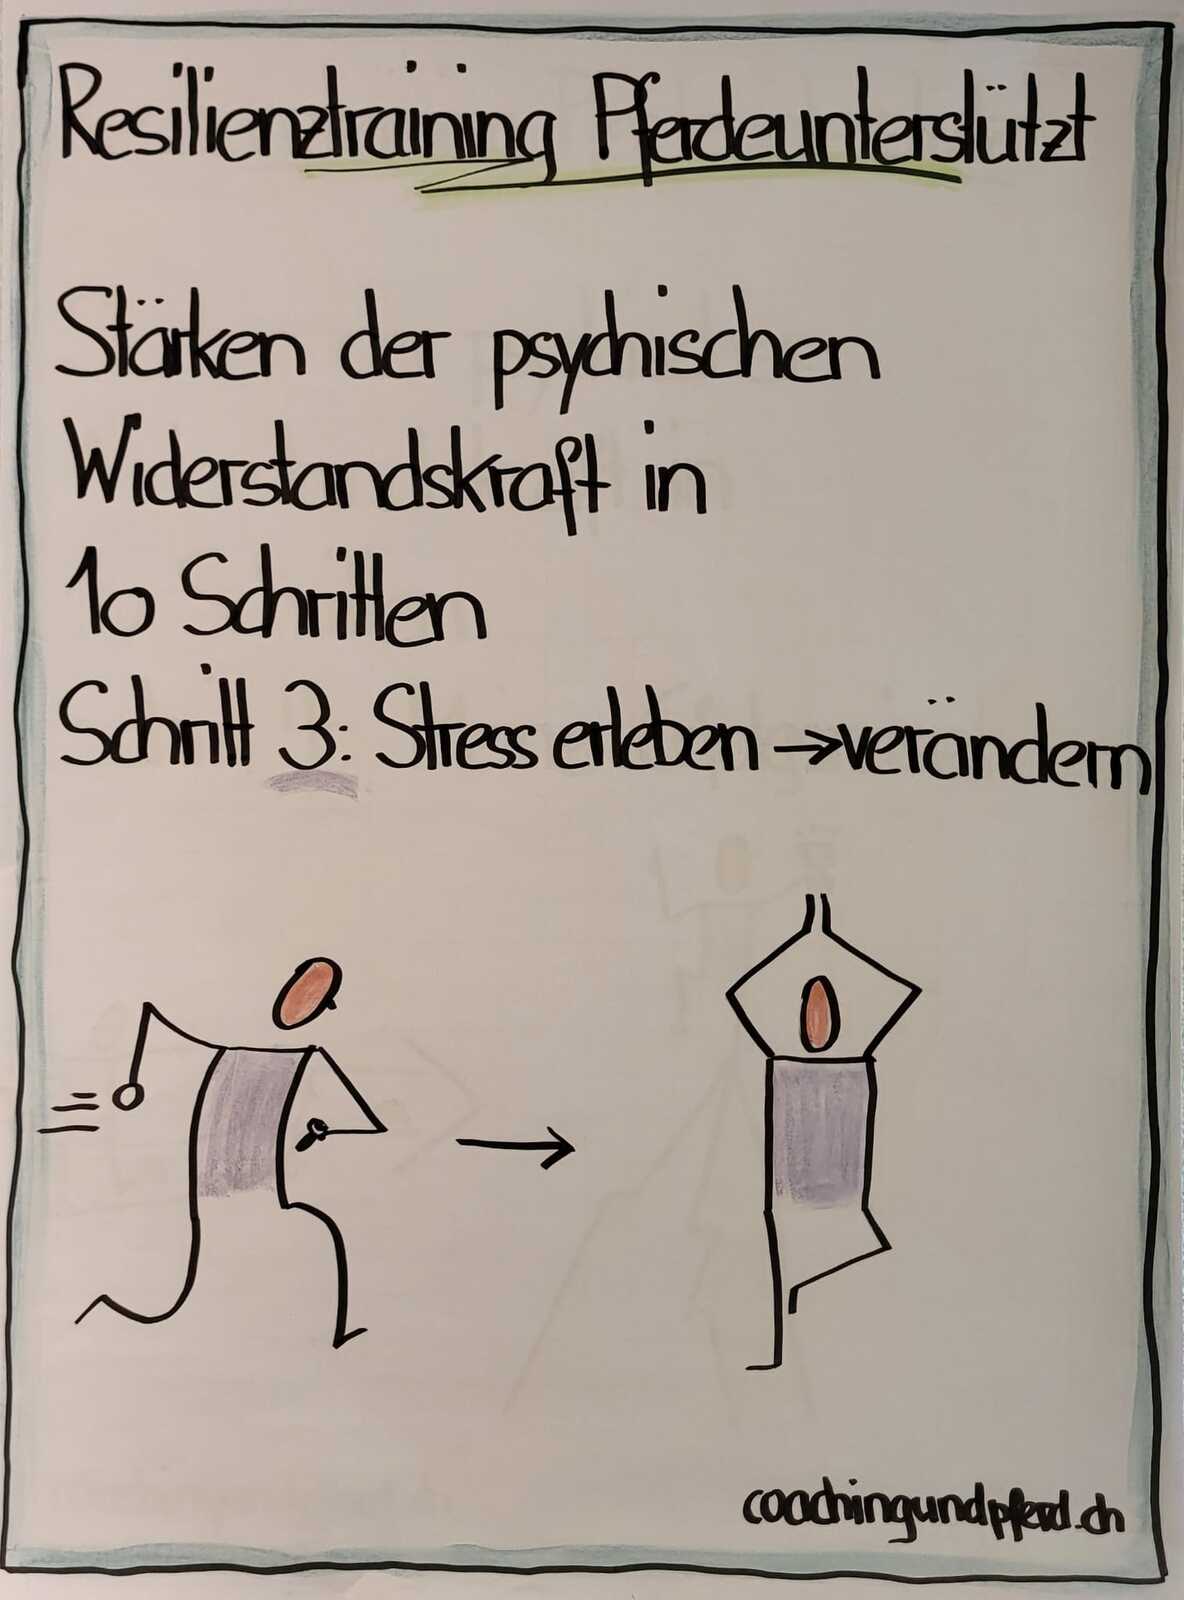 Resilienztraining Pferdeunterstützt
Stärken der psychischen
Widerstandskraft in
10 Schritten
Schritt 3: Stress erleben → verändern
coachingundpferd.ch